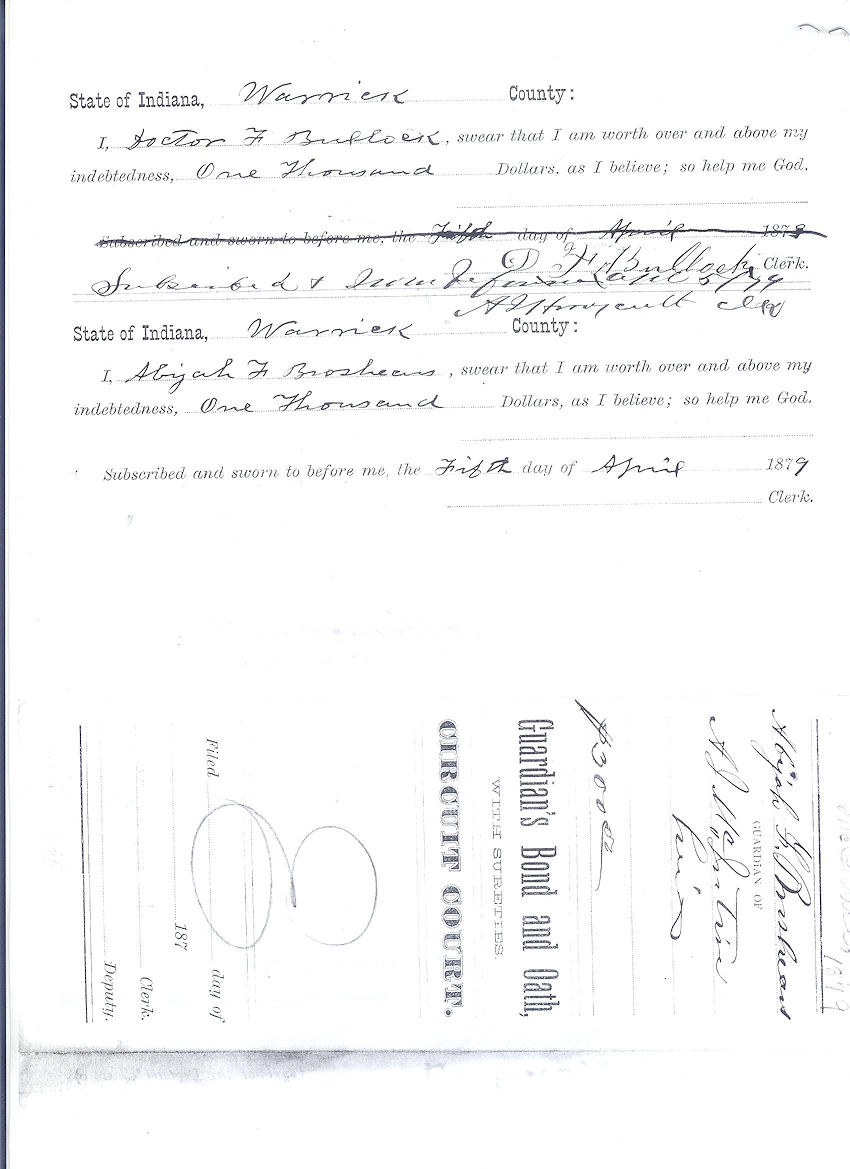 State of Indiana, Warrick County:
I, Doctor F Bullock, swear that I am worth over and above my
indebtedness, One Thousand Dollars, as I believe; so help me God.
Subscribed and sworn to before me, the Fifth day of April 1879
D F Bullock Clerk.
Subscribed & Sworn before me Apl 5/79
State of Indiana, Warrick County:
I, Abijah F Brosheans, swear that I am worth over and above my
indebtedness, One Thousand Dollars, as I believe; so help me God.
Subscribed and sworn to before me, the Fifth day of April 1879
Clerk.
Abijah F. Brosheans
GUARDIAN OF
Guardian's Bond and Oath,
WITH SURETIES.
CIRCUIT COURT.
Filed day of
187
Clerk.
Deputy.